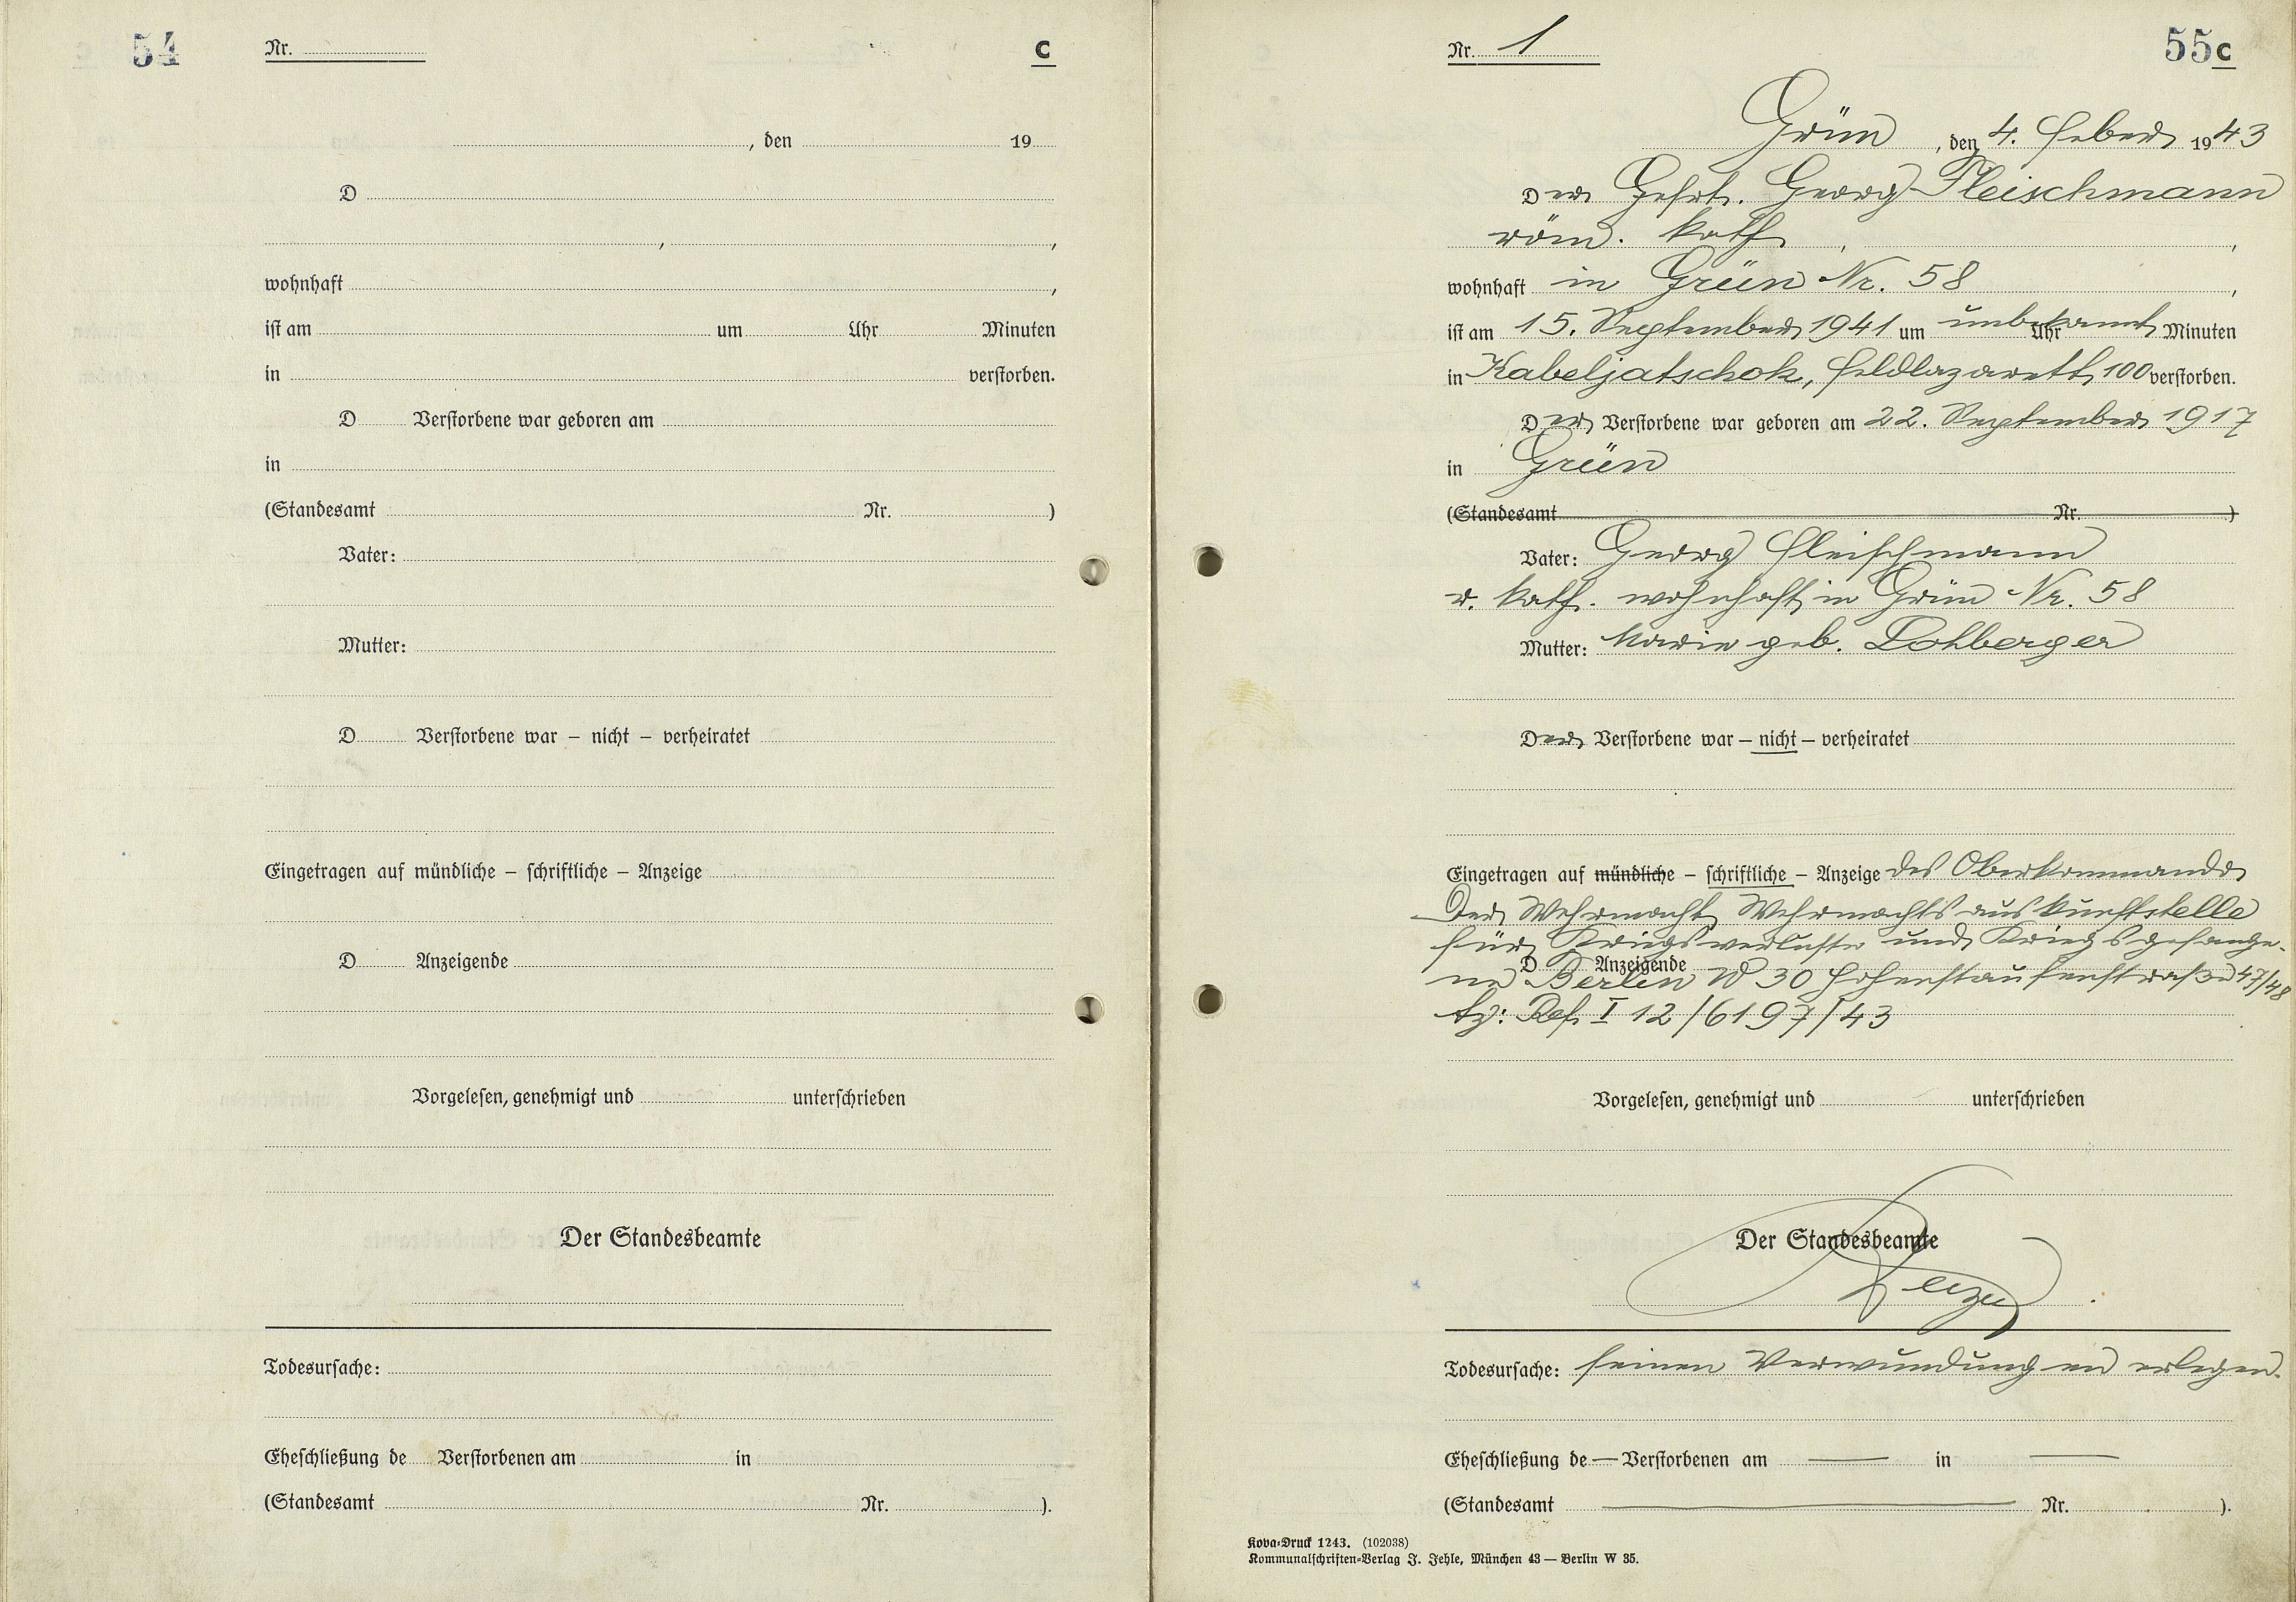 54 Nr. C
, den 19
D
, ,
wohnhaft ,
ist am um Uhr Minuten
in verstorben.
D Verstorbene war geboren am
in
(Standesamt Nr. )
Vater:
Mutter:
D Verstorbene war – nicht – verheiratet
Eingetragen auf mündliche – schriftliche – Anzeige
D Anzeigende
Vorgelesen, genehmigt und unterschrieben
Der Standesbeamte
Todesursache:
Eheschließung de Verstorbenen am in
(Standesamt Nr. ).
Nr. 1 55 C
Grün, den 4. Feber 1943
Der Gefrt. Georg Fleischmann
röm. kath , ,
wohnhaft in Grün Nr. 58 ,
ist am 15. September 1941 um unbekannt Uhr Minuten
in Kabeljatschok, Feldlazarett 100 verstorben.
Der Verstorbene war geboren am 22. September 1917
in Grün
(Standesamt Nr. )
Vater: Georg Fleischmann
r. kath. wohnhaft in Grün Nr. 58
Mutter: Marie geb. Lohberger
Der Verstorbene war – nicht – verheiratet
Eingetragen auf mündliche – schriftliche – Anzeige des Oberkommando
Der Wehrmacht Wehrmachtsauskunftstelle
für Kriegsverluste und Kriegsgefange-
D Anzeigende
ne Berlin W 30 Hohenstaufenstraße 47/48
Az: Ref. I 12/6197/43
Vorgelesen, genehmigt und unterschrieben
Der Standesbeamte
Todesursache: seinen Verwundungen erlegen.
Eheschließung de — Verstorbenen am — in —
(Standesamt — Nr. ).
Kova-Druck 1243. (102038)
Kommunalschriften-Verlag J. Jehle, München 43 — Berlin W 35.